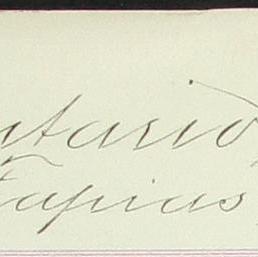 ntario
Tapias